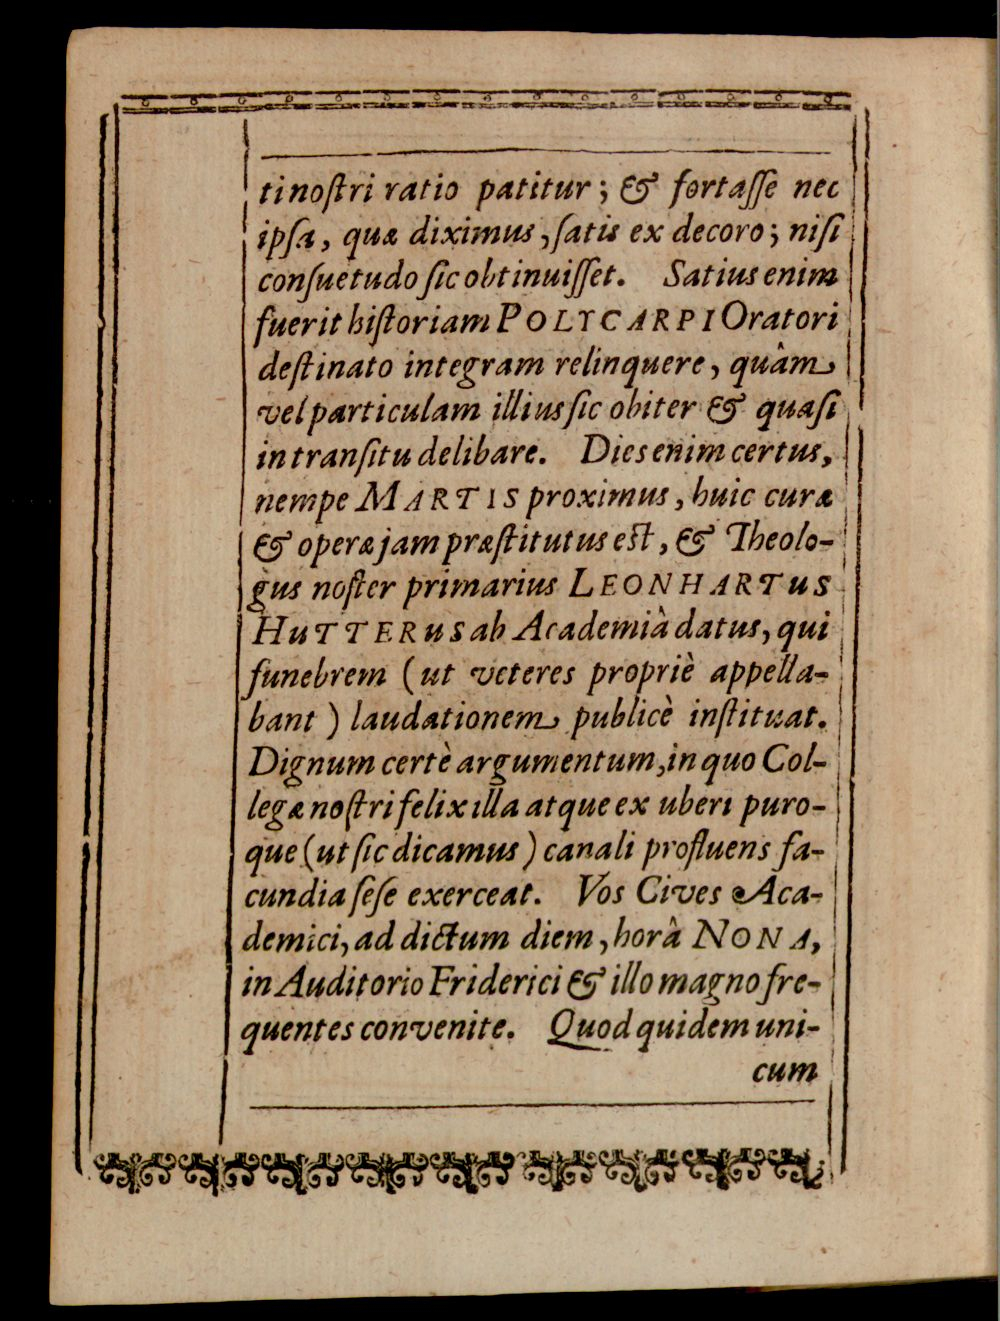 ti noſtri ratio patitur; & fortaſſe nec
ipſa, quæ diximus, ſatis ex decoro; niſi
conſuetudo ſic obtinuiſſet. Satius enim
fuerit hiſtoriam POLYCARPI Oratori
deſtinato integram relinquere, quâm
vel particulam illius ſic obiter & quaſi
in tranſitu delibare. Dies enim certus,
nempe MARTIS proximus, huic curæ
& operæ jam præſtitutus eſt, & Theolo-
gus noſter primarius LEONHARTUS
HUTTERUS ab Academiâ datus, qui
funebrem (ut veteres propriè appella-
bant) laudationem publicè inſtituat.
Dignum certè argumentum, in quo Col-
legæ noſtri felix illa atque ex uberi puro-
que (ut ſic dicamus) canali profluens fa-
cundia ſeſe exerceat. Vos Cives Aca-
demici, ad dictum diem, horâ NONA,
in Auditorio Friderici & illo magno fre-
quentes convenite. Quod quidem uni-
cum